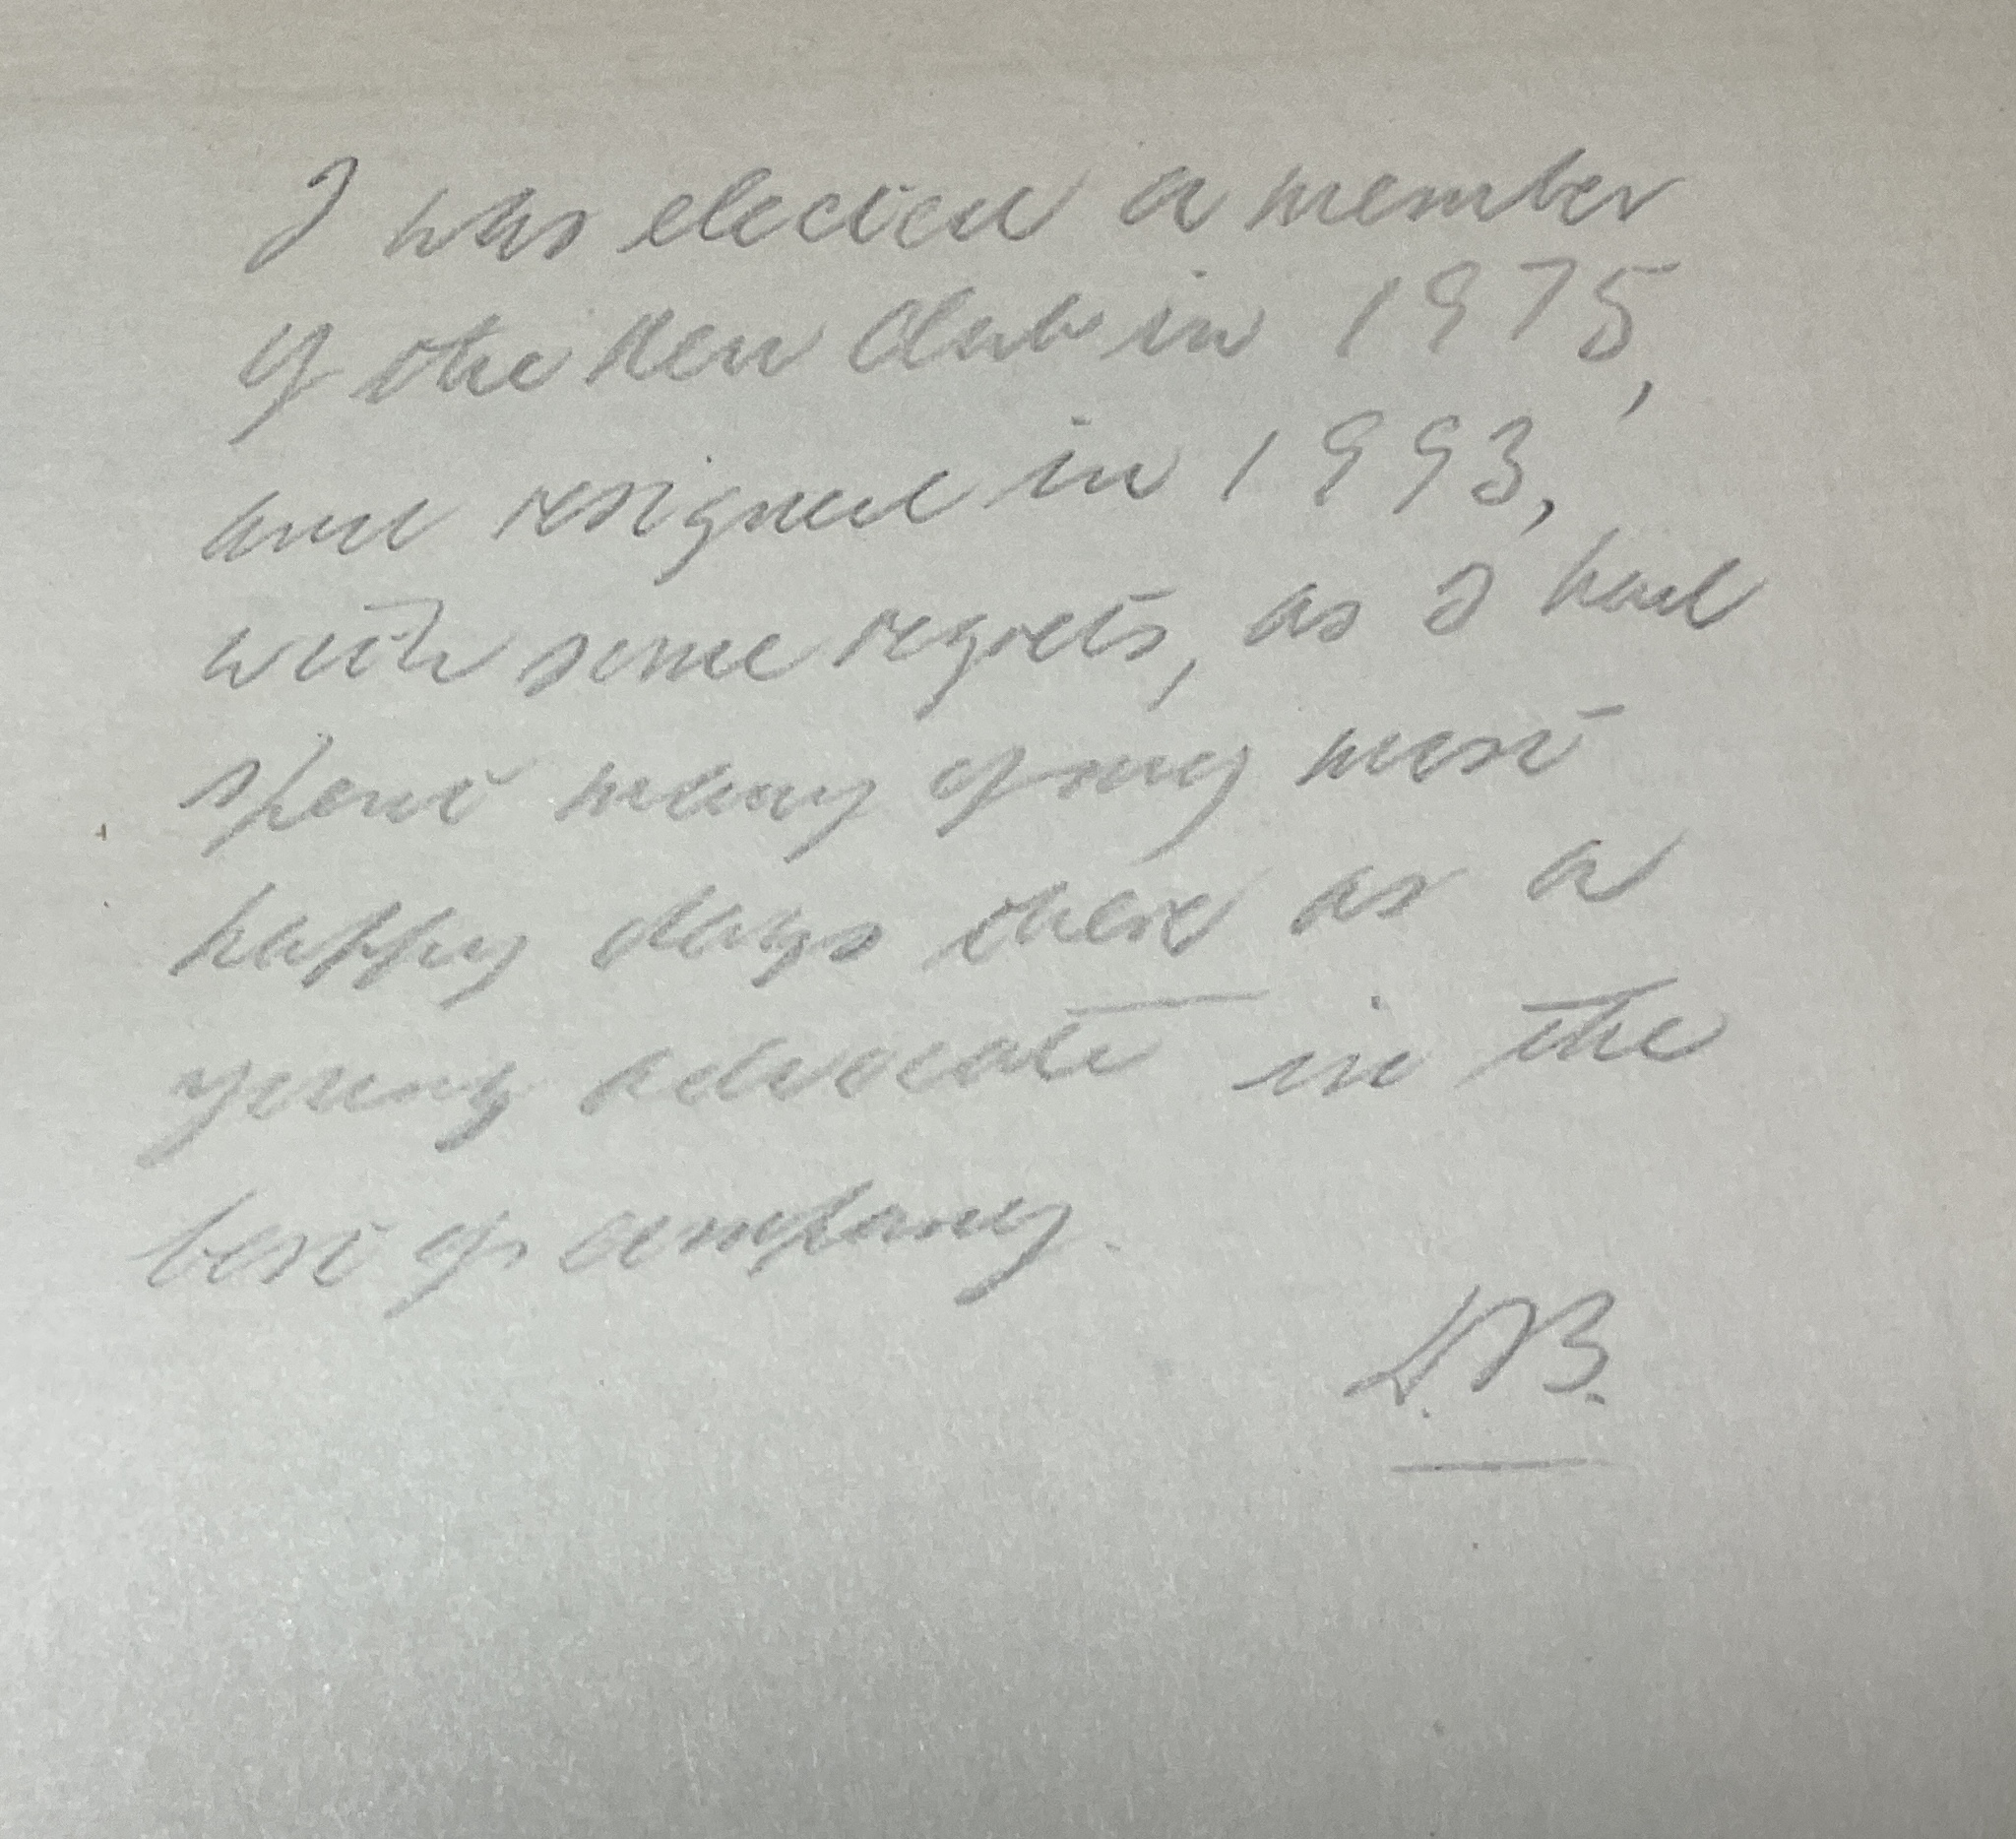 I was elected a member
of the New Club in 1975,
and resigned in 1993,
with some regrets, as I had
spent many of my most
happy days there as a
young advocate in the
best of company.
D.B.